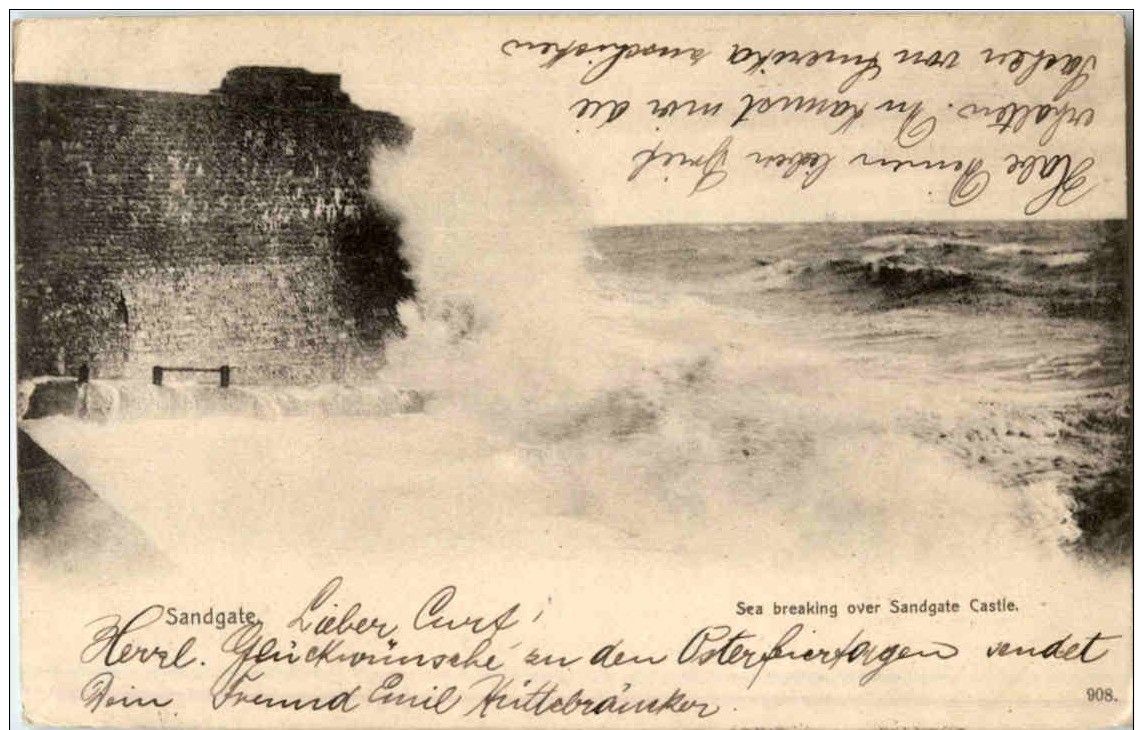 Habe Deinen lieben Brief
erhalten. Du kannst mir die
Sachen von Amerika zuschicken
Sandgate.
Sea breaking over Sandgate Castle.
Lieber Curt!
Herzl. Glückwünsche zu den Osterfeiertagen sendet
Dein Freund Emil Hüttebräucker.
908.